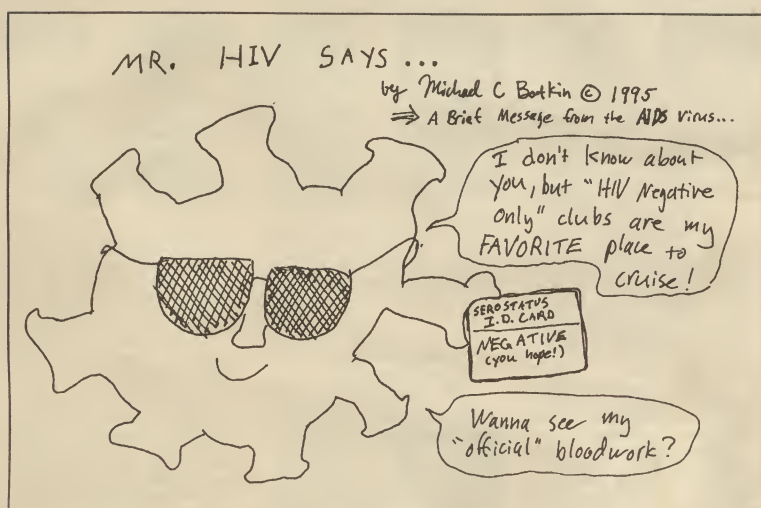 MR. HIV SAYS ...
by Michael C Botkin © 1995
⇒ A Brief Message from the AIDS Virus...
I don't know about
you, but "HIV Negative
only" clubs are my
FAVORITE place to
cruise!
SEROSTATUS
I.D. CARD
NEGATIVE
(you hope!)
Wanna see my
"official" bloodwork?